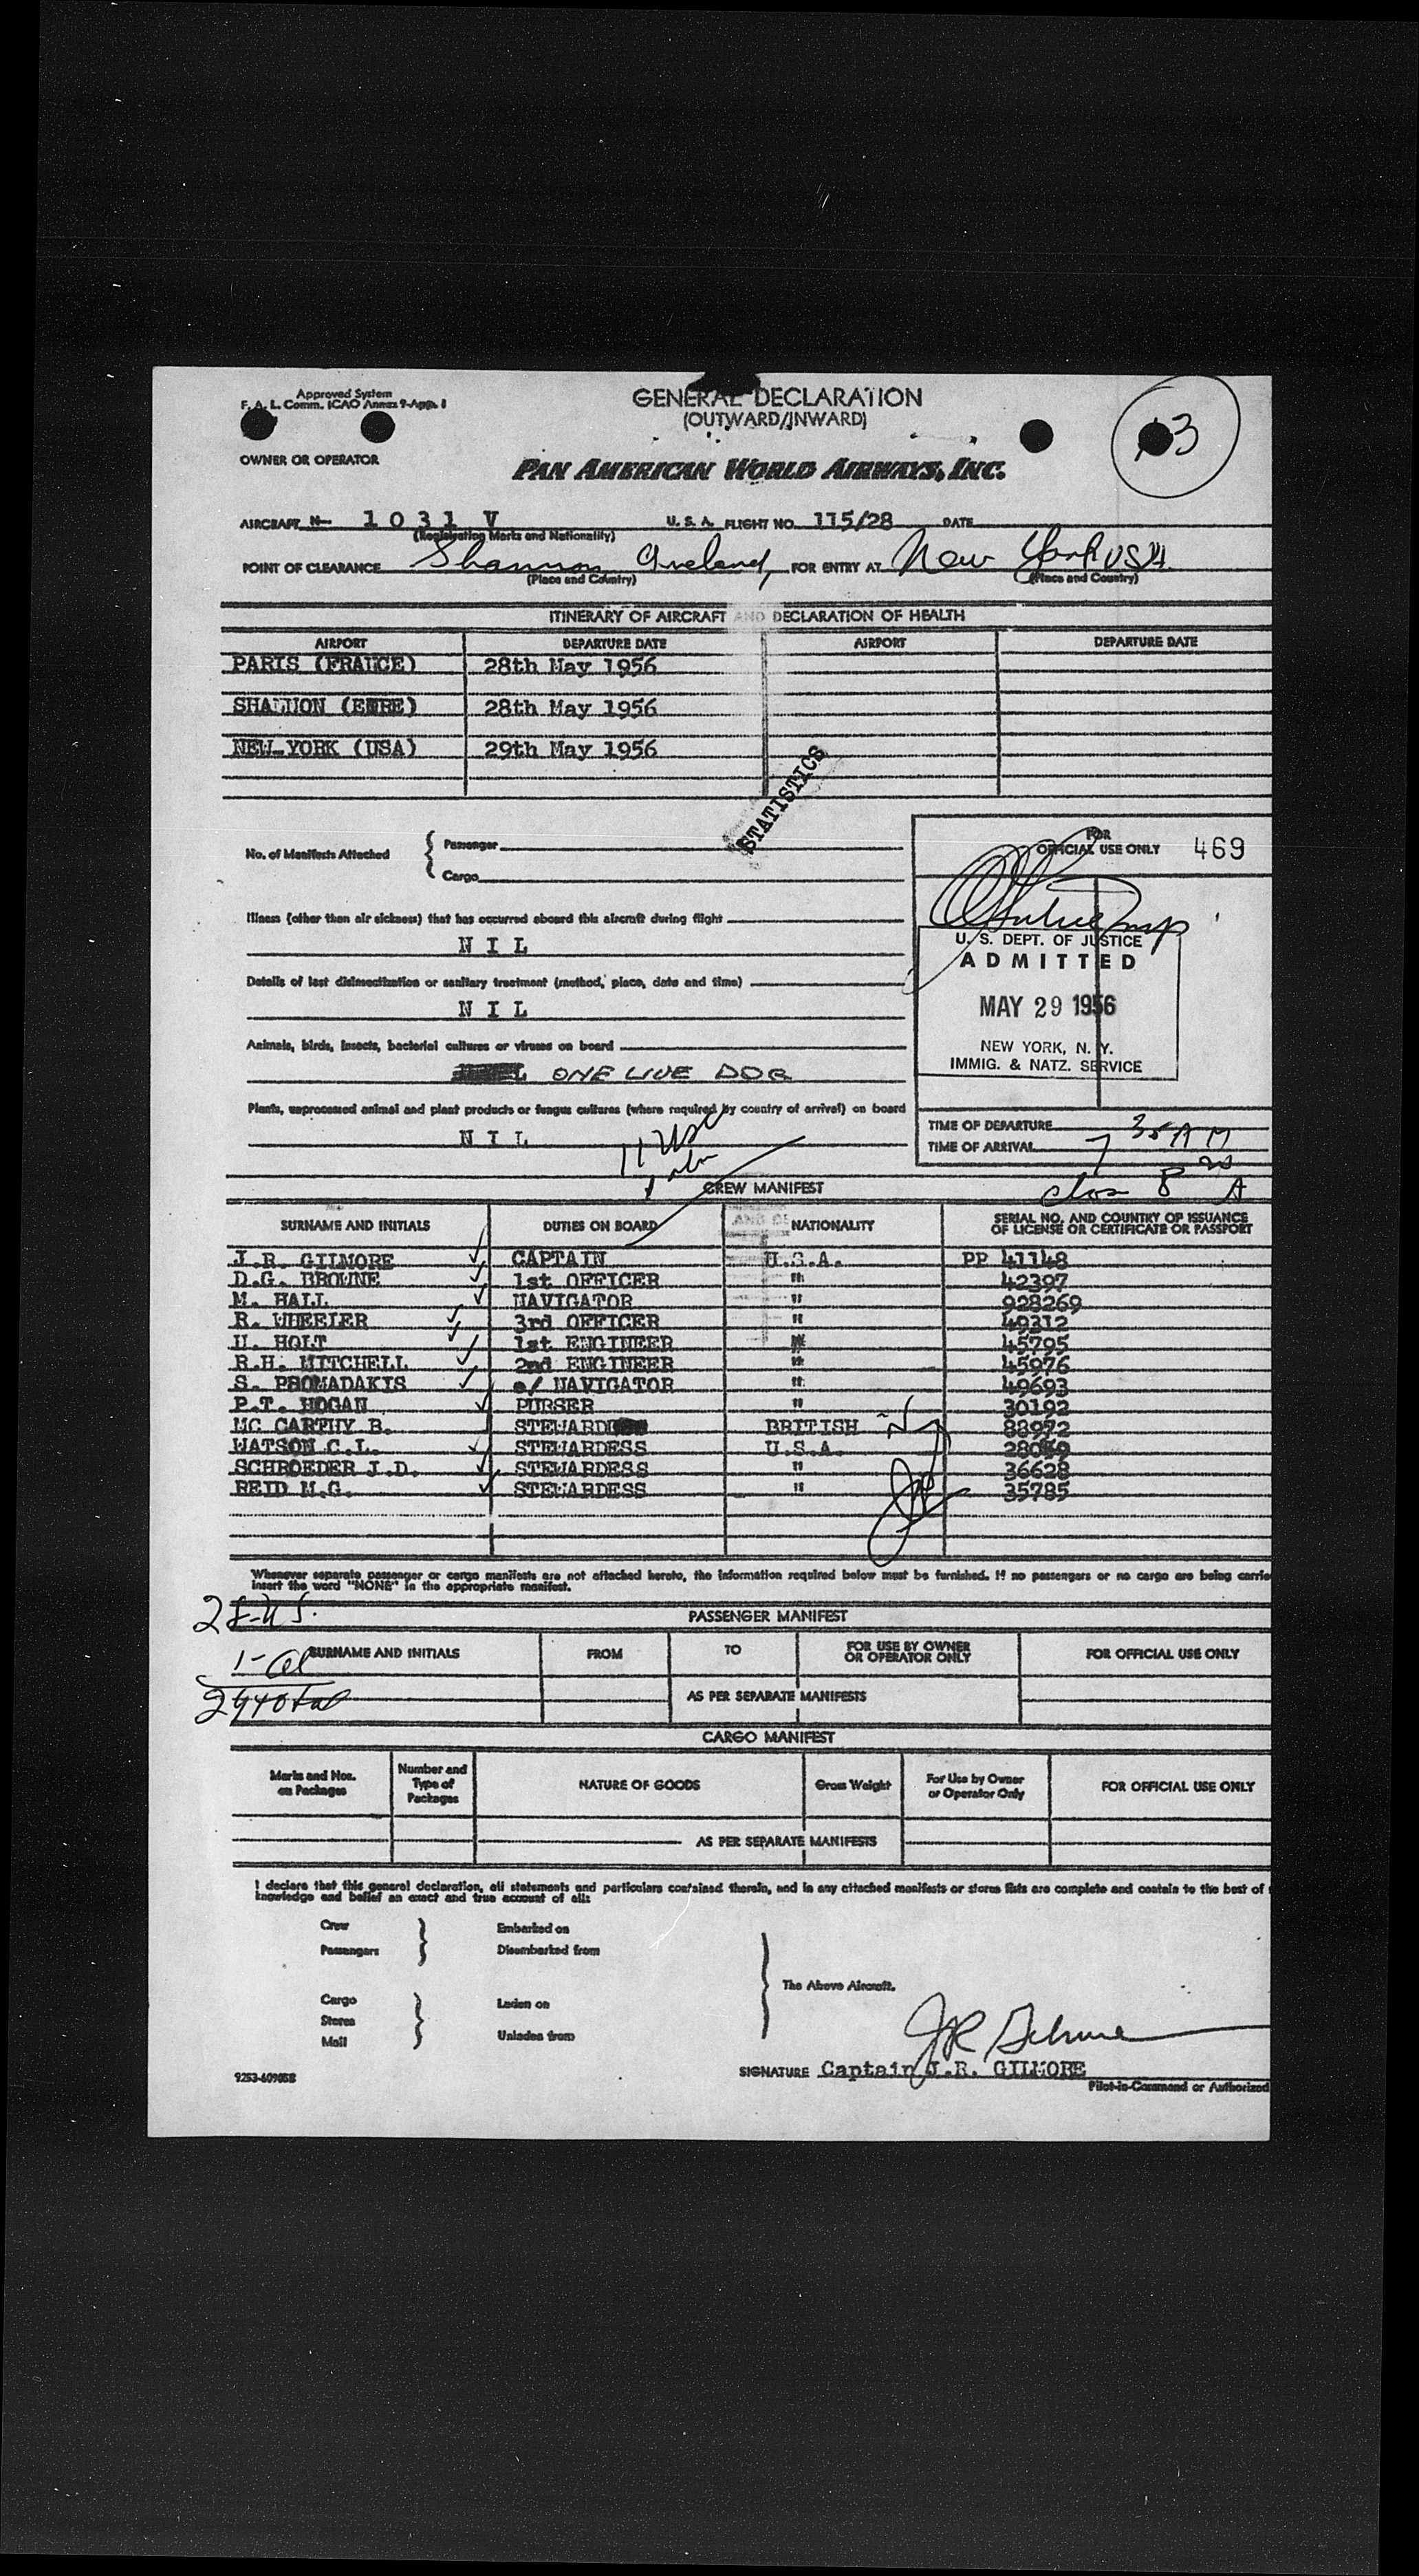 Approved System
F. A. L. Comm. ICAO Annex 9-App. 1
GENERAL DECLARATION
(OUTWARD/INWARD)
13
OWNER OR OPERATOR
PAN AMERICAN WORLD AIRWAYS, INC.
AIRCRAFT N- 1 0 3 1 V U. S. A. FLIGHT NO. 115/28 DATE
(Registration Marks and Nationality)
POINT OF CLEARANCE Shannon Ireland, FOR ENTRY AT New York USA.
(Place and Country) (Place and Country)
ITINERARY OF AIRCRAFT AND DECLARATION OF HEALTH
AIRPORT DEPARTURE DATE AIRPORT DEPARTURE DATE
PARIS (FRANCE) 28th May 1956
SHANNON (EIRE) 28th May 1956
NEW YORK (USA) 29th May 1956
STATISTICS
No. of Manifests Attached { Passenger
Cargo
FOR
OFFICIAL USE ONLY 469
Illness (other than air sickness) that has occurred aboard this aircraft during flight
N I L
Details of last disinsectization or sanitary treatment (method, place, date and time)
N I L
Animals, birds, insects, bacterial cultures or viruses on board
ONE LIVE DOG
Plants, unprocessed animal and plant products or fungus cultures (where required by country of arrival) on board
N I L
U. S. DEPT. OF JUSTICE
ADMITTED
MAY 29 1956
NEW YORK, N. Y.
IMMIG. & NATZ. SERVICE
TIME OF DEPARTURE
TIME OF ARRIVAL 7 35 AM
11 USC
8 20 A
CREW MANIFEST
SURNAME AND INITIALS DUTIES ON BOARD NATIONALITY SERIAL NO. AND COUNTRY OF ISSUANCE
OF LICENSE OR CERTIFICATE OR PASSPORT
J.R. GILMORE CAPTAIN U.S.A. PP 41148
D.G. BROWNE 1st OFFICER " 42397
M. HALL NAVIGATOR " 928269
R. WHEELER 3rd OFFICER " 49312
U. HOLT 1st ENGINEER " 45795
R.H. MITCHELL 2nd ENGINEER " 45976
S. PSOMADAKIS e/ NAVIGATOR " 49693
P.T. HOGAN PURSER " 30192
MC CARTHY B. STEWARD BRITISH 88972
WATSON C.L. STEWARDESS U.S.A.
SCHROEDER J.D. STEWARDESS " 36628
REID M.G. STEWARDESS " 35785
Whenever separate passenger or cargo manifests are not attached hereto, the information required below must be furnished. If no passengers or no cargo are being carrie
insert the word "NONE" in the appropriate manifest.
28-US.
PASSENGER MANIFEST
1-al
SURNAME AND INITIALS FROM TO FOR USE BY OWNER
OR OPERATOR ONLY FOR OFFICIAL USE ONLY
29 total
AS PER SEPARATE MANIFESTS
CARGO MANIFEST
Marks and Nos.
on Packages Number and
Type of
Packages NATURE OF GOODS Gross Weight For Use by Owner
or Operator Only FOR OFFICIAL USE ONLY
AS PER SEPARATE MANIFESTS
I declare that this general declaration, all statements and particulars contained therein, and in any attached manifests or stores lists are complete and contain to the best of
knowledge and belief an exact and true account of all:
Crew Embarked on
Passengers Disembarked from
The Above Aircraft.
Cargo Laden on
Stores
Mail Unladen from
JR Gilmore
SIGNATURE Captain J.R. GILMORE
9253-609058 Pilot-in-Command or Authorized